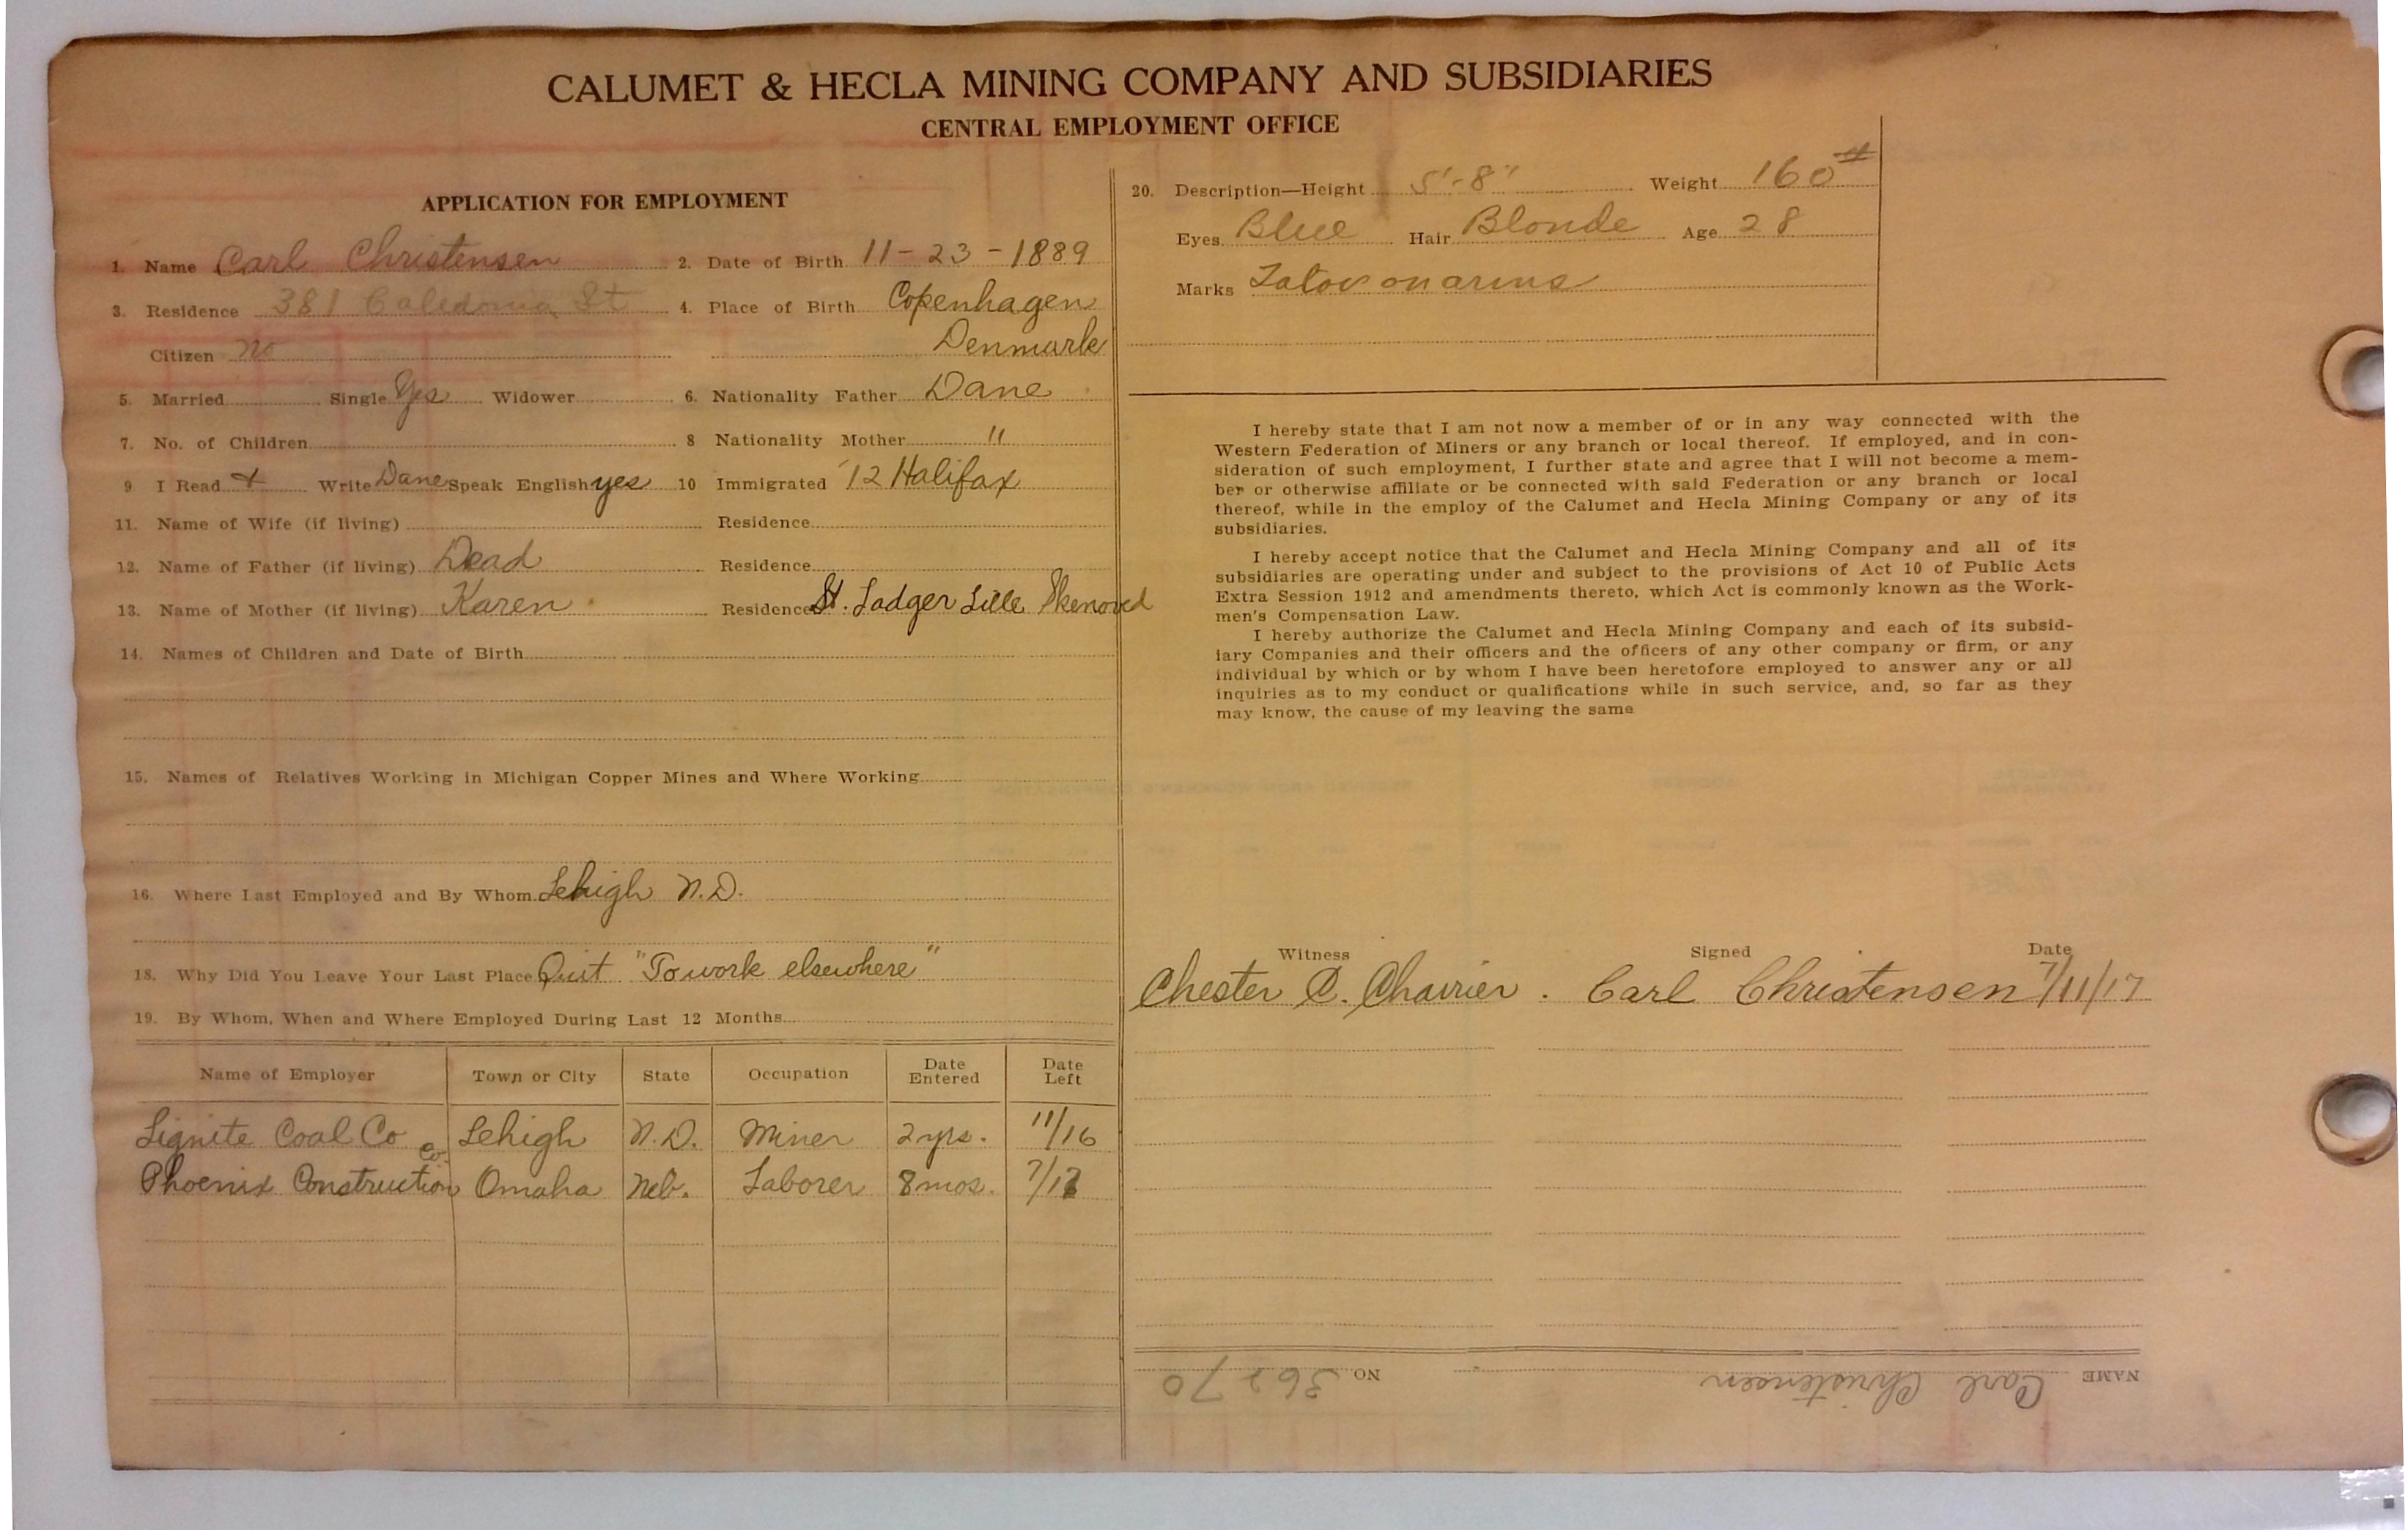 CALUMET & HECLA MINING COMPANY AND SUBSIDIARIES
CENTRAL EMPLOYMENT OFFICE
APPLICATION FOR EMPLOYMENT
1. Name Carl Christensen 2. Date of Birth 11-23-1889
3. Residence 381 Caledonia St 4. Place of Birth Copenhagen
Citizen No Denmark
5. Married Single Yes Widower 6. Nationality Father Dane
7. No. of Children 8 Nationality Mother "
9 I Read + Write Dane Speak English yes 10 Immigrated '12 Halifax
11. Name of Wife (if living) Residence
12. Name of Father (if living) Dead Residence
13. Name of Mother (if living) Karen Residence St. Ladger Lille
14. Names of Children and Date of Birth
15. Names of Relatives Working in Michigan Copper Mines and Where Working
16. Where Last Employed and By Whom Lehigh N.D.
18. Why Did You Leave Your Last Place Quit "To work elsewhere"
19. By Whom, When and Where Employed During Last 12 Months
Name of Employer Town or City State Occupation Date Entered Date Left
Lignite Coal Co Lehigh N.D. Miner 2 yrs. 11/16
Phoenix Construction Co. Omaha Neb. Laborer 8 mos. 7/17
20. Description—Height 5'-8" Weight 160#
Eyes Blue Hair Blonde Age 28
Marks Tatoo on arms
I hereby state that I am not now a member of or in any way connected with the
Western Federation of Miners or any branch or local thereof. If employed, and in con-
sideration of such employment, I further state and agree that I will not become a mem-
ber or otherwise affiliate or be connected with said Federation or any branch or local
thereof, while in the employ of the Calumet and Hecla Mining Company or any of its
subsidiaries.
I hereby accept notice that the Calumet and Hecla Mining Company and all of its
subsidiaries are operating under and subject to the provisions of Act 10 of Public Acts
Extra Session 1912 and amendments thereto, which Act is commonly known as the Work-
men's Compensation Law.
I hereby authorize the Calumet and Hecla Mining Company and each of its subsid-
iary Companies and their officers and the officers of any other company or firm, or any
individual by which or by whom I have been heretofore employed to answer any or all
inquiries as to my conduct or qualifications while in such service, and, so far as they
may know, the cause of my leaving the same
Witness Signed Date
Chester C. Carl Christensen 7/11/17
NAME Carl Christensen NO. 36270